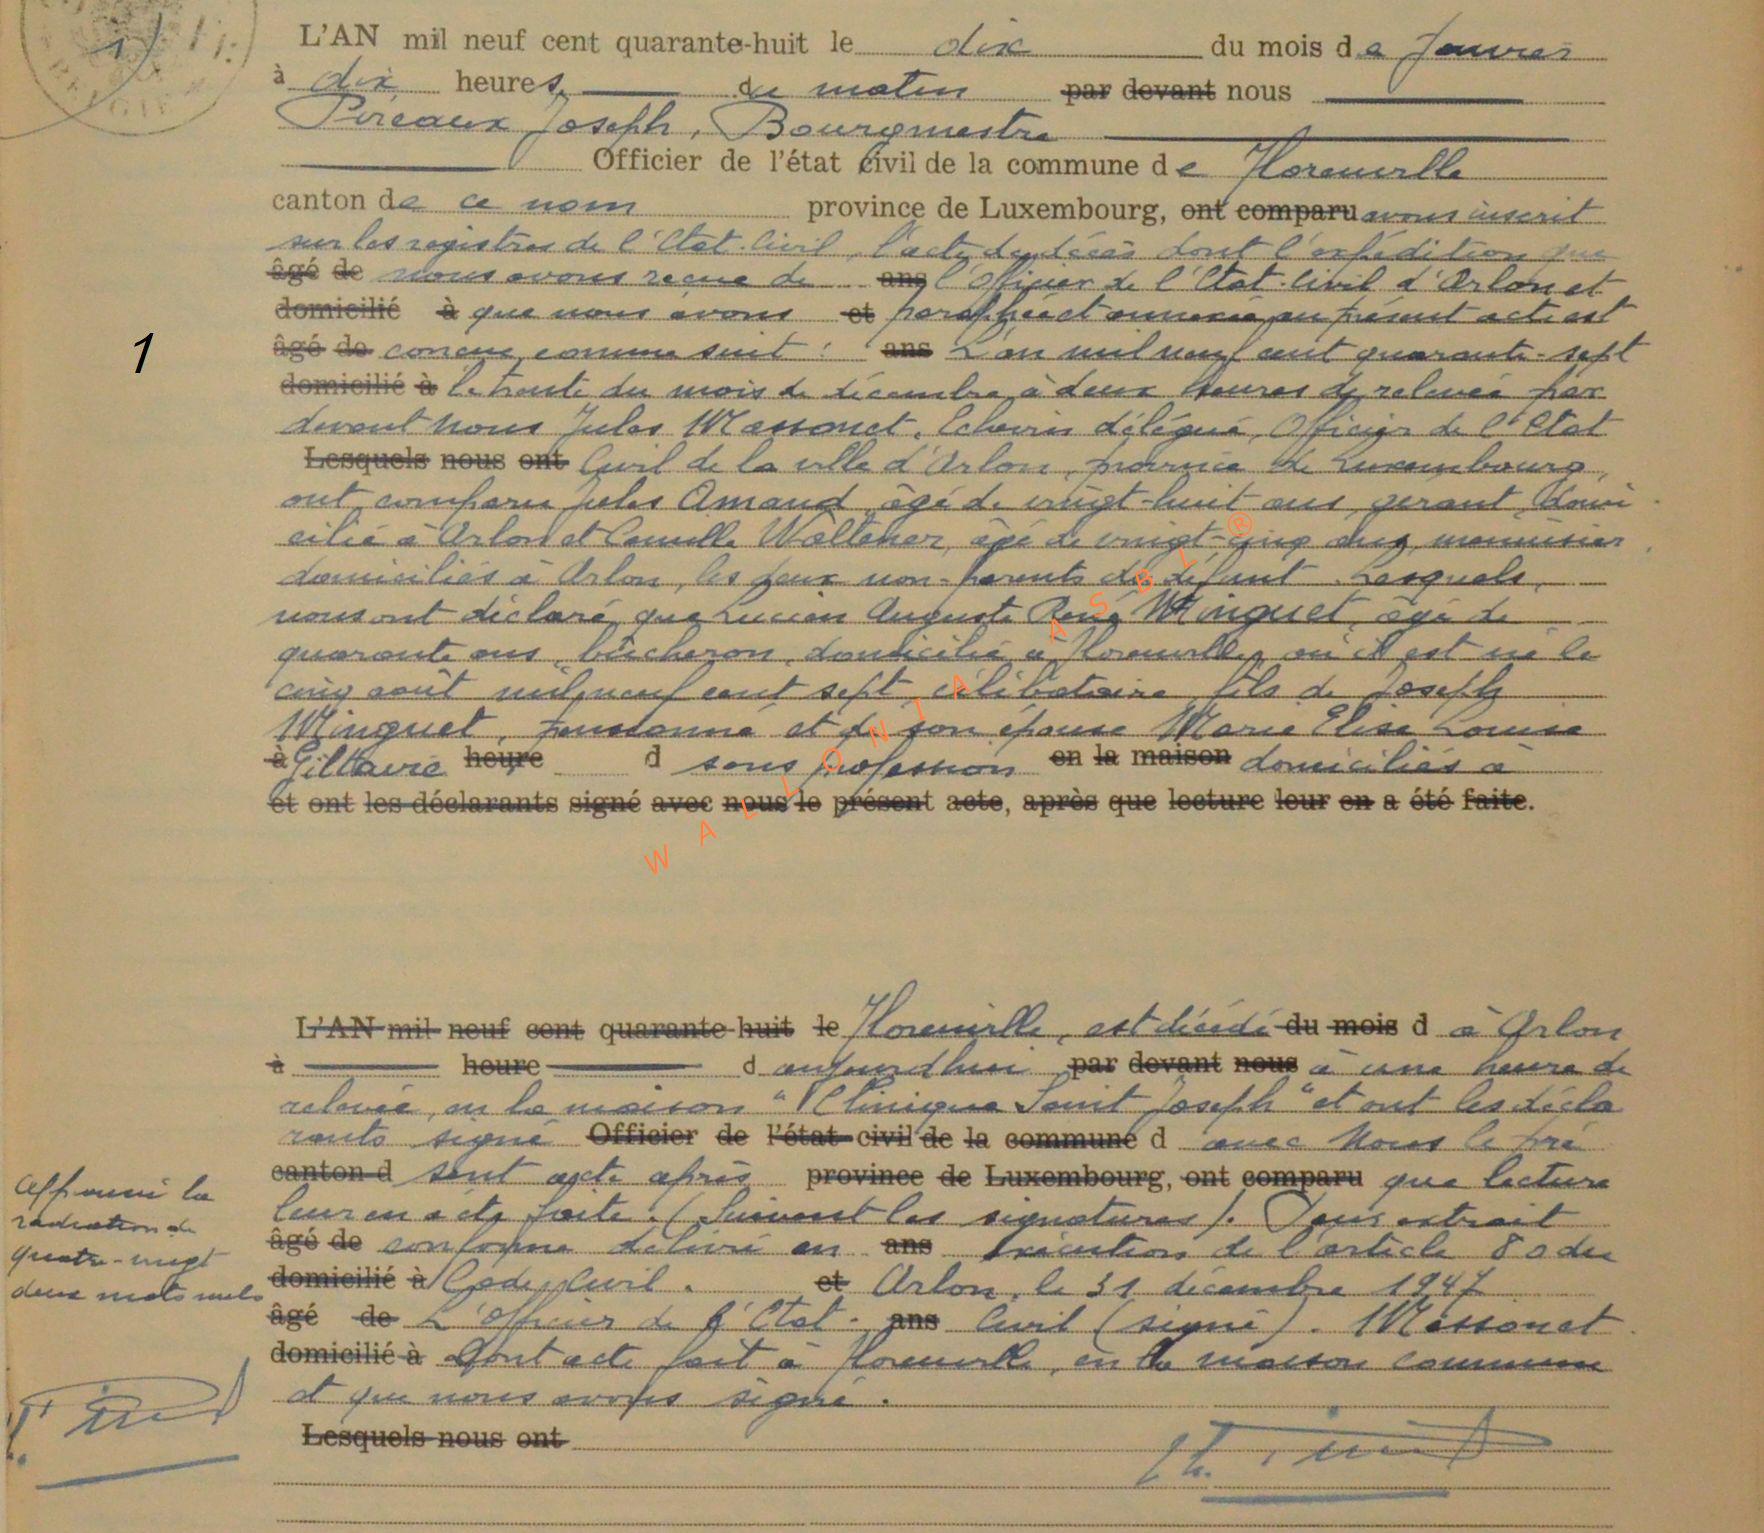 L'AN mil neuf cent quarante-huit le dix du mois de Janvier
à dix heures du matin par devant nous
Pireaux Joseph, Bourgmestre
Officier de l'état civil de la commune de Florenville
canton de ce nom province de Luxembourg, ont comparu avons inscrit
sur les registres de l'Etat-Civil, l'acte de décès dont l'expédition que
âgé de nous avons reçue de ans l'Officier de l'Etat-Civil d'Arlon et
domicilié à que nous avons et paraphée et annexée au présent acte est
âgé de conçue comme suit : ans L'an mil neuf cent quarante-sept
domicilié à le trente du mois de décembre à deux heures de relevée par
devant nous Jules Massonet, Echevin délégué, Officier de l'Etat
Lesquels nous ont Civil de la ville d'Arlon, province de Luxembourg,
ont comparu Jules Amand, âgé de vingt-huit ans, gérant, domi
cilié à Arlon et Camille Woltener, âgé de vingt-cinq ans, menuisier
domiciliés à Arlon, les deux non-parents du défunt. Lesquels,
nous ont déclaré que Lucien Auguste René Minguet, âgé de
quarante ans, bûcheron, domicilié à Florenville, où il est né le
cinq août mil neuf cent sept, célibataire, fils de Joseph
Minguet, pensionné et de son épouse Marie Elise Louise
à Gillavie heure d sans profession en la maison domiciliés à
et ont les déclarants signé avec nous le présent acte, après que lecture leur en a été faite.
L'AN mil neuf cent quarante-huit le Florenville, est décédé du mois d à Arlon
à heure d aujourd'hui par devant nous à une heure de
relevée, en la maison "Clinique Saint Joseph" et ont les décla
rants signé Officier de l'état civil de la commune d avec Nous le pré
canton d sent acte après province de Luxembourg, ont comparu que lecture
leur en a été faite. (Suivent les signatures). Pour extrait
âgé de conforme délivré en ans exécution de l'article 80 du
domicilié à Code Civil. et Arlon, le 31 décembre 1947
âgé de L'Officier de l'Etat- ans Civil (signé). Massonet
domicilié à Dont acte fait à Florenville, en la maison commune
et que nous avons signé.
Lesquels nous ont
Approuvé la
radiation de
quatre-vingt
deux mots nuls
1
WALLONIA ASBL ®